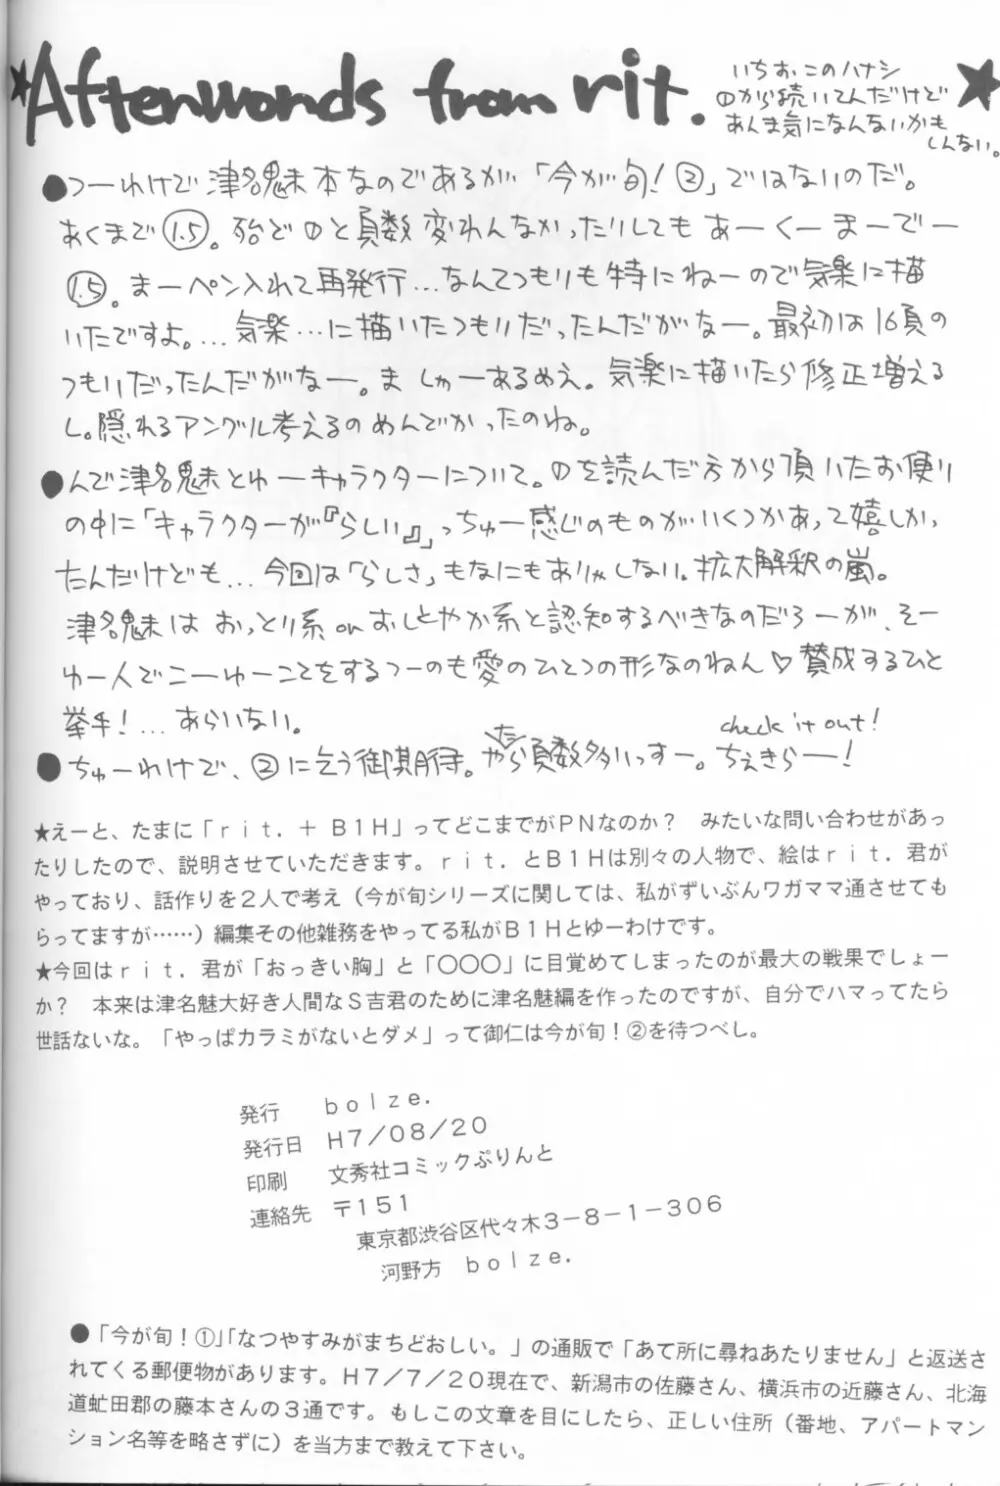 ★Afterwords from rit.★
いちお、このハナシ
①から続いてんだけど
あんま気になんないかも
しんない。
●つーわけで津名魅本なのであるが「今が旬!②」ではないのだ。
あくまで1.5。殆ど①と頁数変わんなかったりしてもあーくーまーでー
1.5。まーペン入れて再発行…なんてつもりも特にねーので気楽に描
いたですよ。…気楽…に描いたつもりだったんだがなー。最初は16頁の
つもりだったんだがなー。ま しゅーあるめえ。気楽に描いたら修正増える
し。隠れるアングル考えるのめんでかったのね。
●んで津名魅とゆーキャラクターについて。①を読んだ方から頂いたお便り
の中に「キャラクターが『らしい』」っちゅー感じのものがいくつかあって嬉しかっ
たんだけども…今回は「らしさ」もなにもありゃしない。拡大解釈の嵐。
津名魅はおっとり系orおしとやか系と認知するべきなのだろーが、そー
ゆー人でこーゆーことをするつーのも愛のひとつの形なのねん♡賛成するひと
挙手!…あらいない。
check it out!
●ちゅーわけで、②に乞う御期待。やたら頁数多いっすー。ちぇきらー!
★えーと、たまに「rit.+B1H」ってどこまでがPNなのか? みたいな問い合わせがあっ
たりしたので、説明させていただきます。rit.とB1Hは別々の人物で、絵はrit.君が
やっており、話作りを2人で考え(今が旬シリーズに関しては、私がずいぶんワガママ通させても
らってますが……)編集その他雑務をやってる私がB1Hとゆーわけです。
★今回はrit.君が「おっきい胸」と「○○○」に目覚めてしまったのが最大の戦果でしょー
か? 本来は津名魅大好き人間なS吉君のために津名魅編を作ったのですが、自分でハマってたら
世話ないな。「やっぱカラミがないとダメ」って御仁は今が旬!②を待つべし。
発行 bolze.
発行日 H7/08/20
印刷 文秀社コミックぷりんと
連絡先 〒151
東京都渋谷区代々木3-8-1-306
河野方 bolze.
●「今が旬!①」「なつやすみがまちどおしい。」の通販で「あて所に尋ねあたりません」と返送さ
れてくる郵便物があります。H7/7/20現在で、新潟市の佐藤さん、横浜市の近藤さん、北海
道虻田郡の藤本さんの3通です。もしこの文章を目にしたら、正しい住所(番地、アパートマン
ション名等を略さずに)を当方まで教えて下さい。